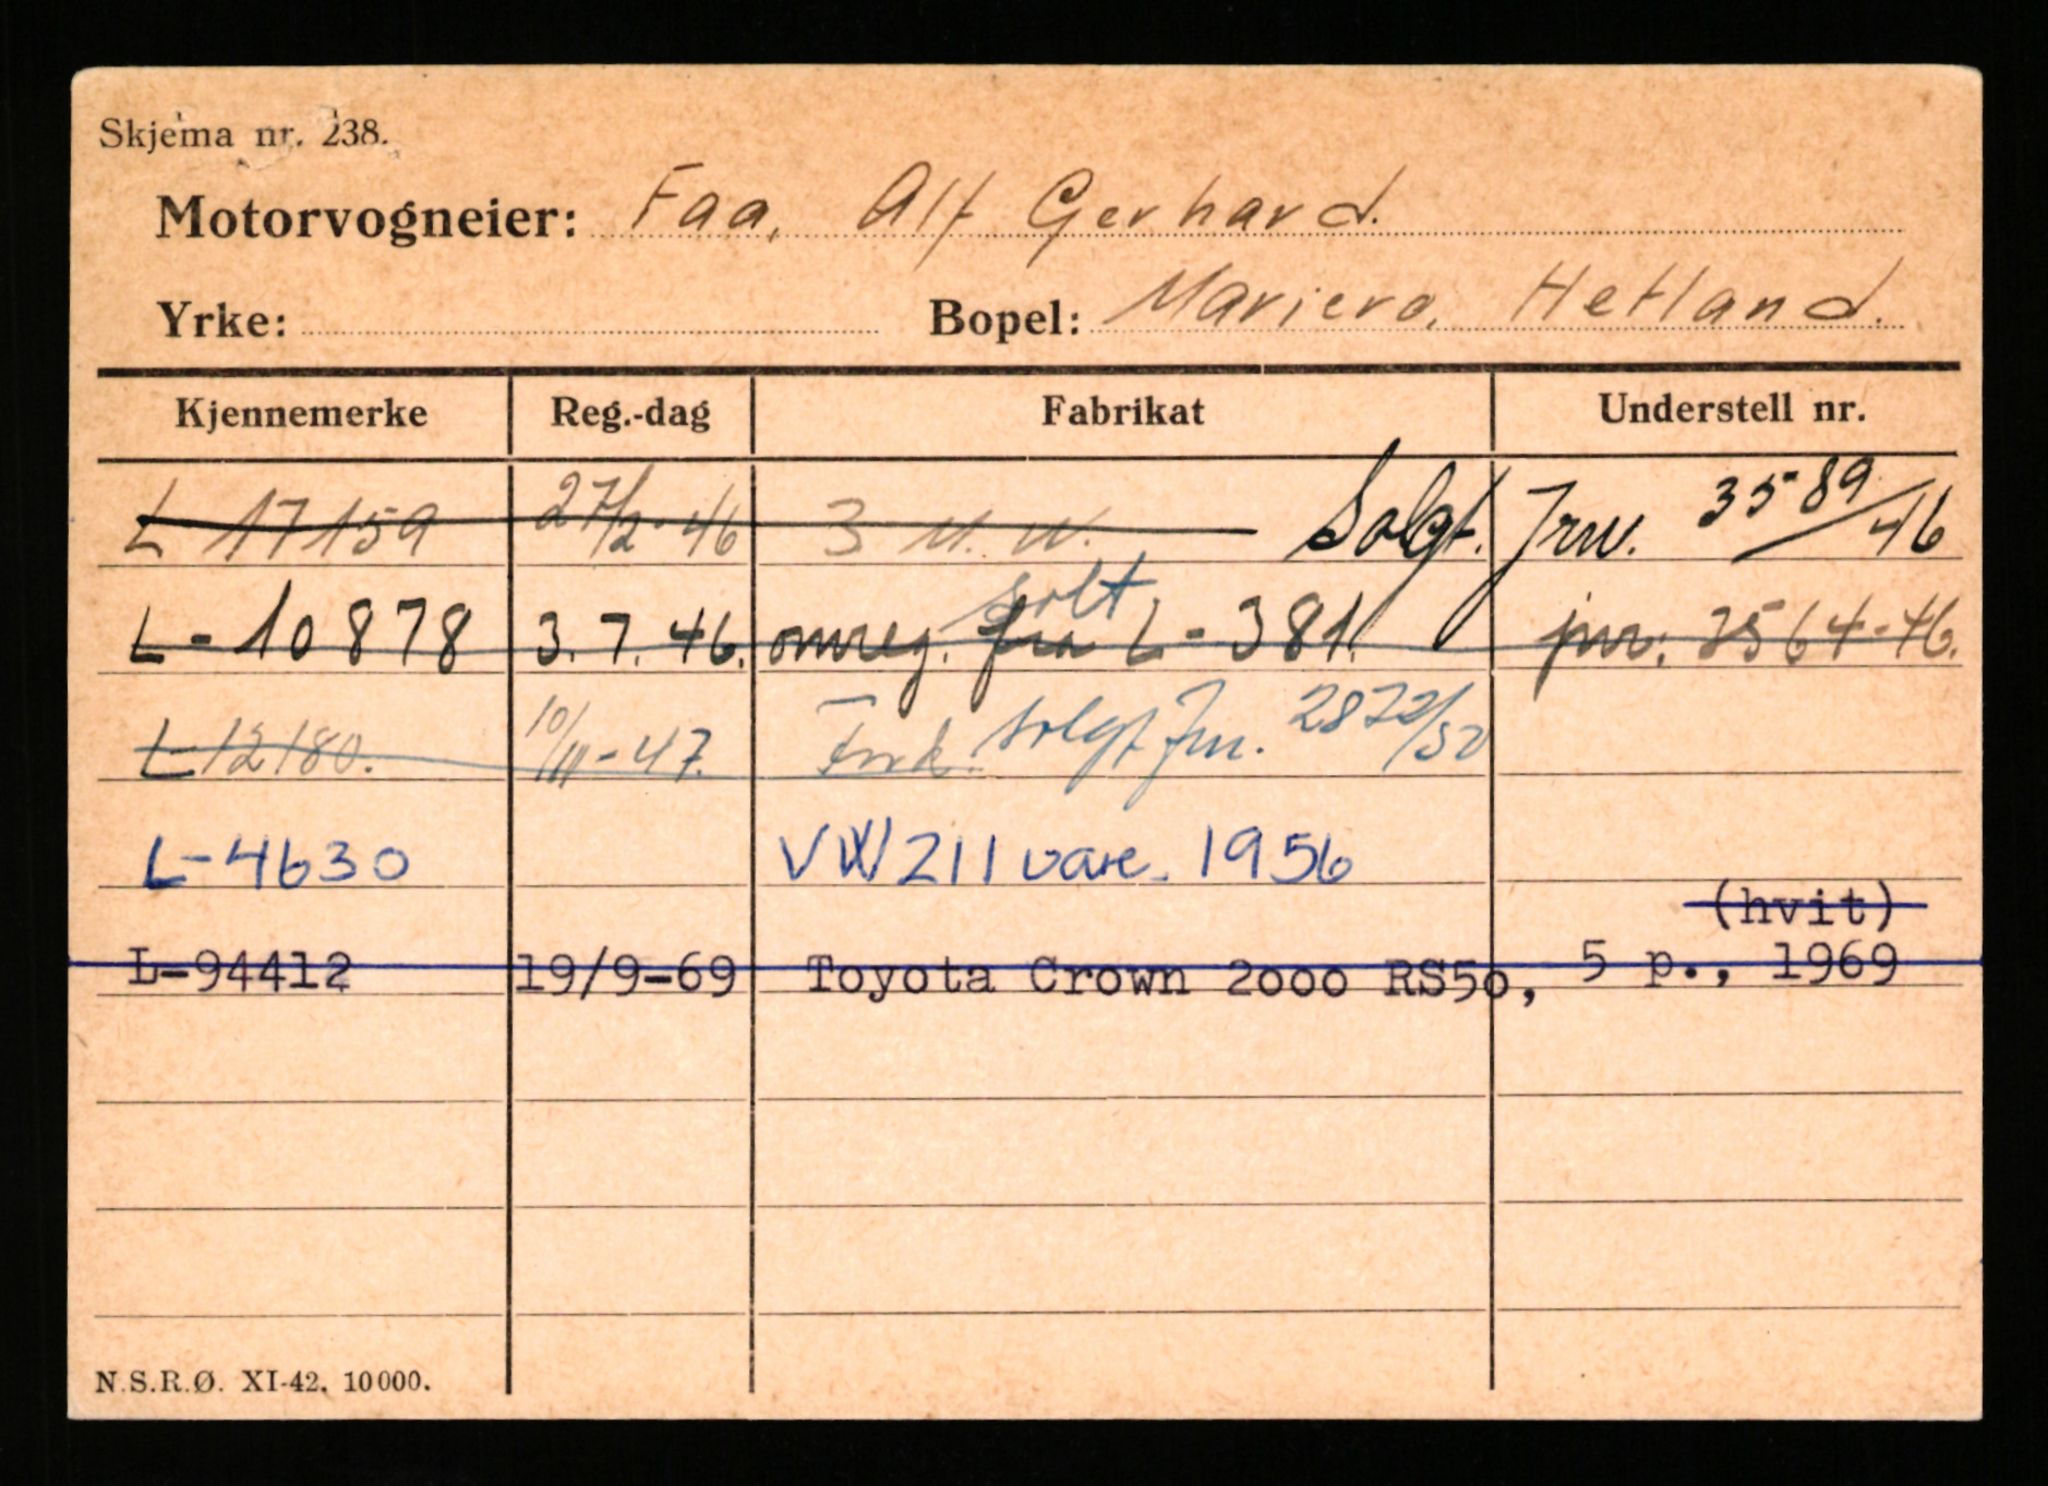 Skjema nr. 238.
Motorvogneier: Faa, Alf Gerhard.
Yrke: Bopel: Mariero, Hetland.
Kjennemerke Reg.-dag Fabrikat Understell nr.
L 17159 27/2-46 Solgt. Jrn. 3589/46
solt
L-10878 3.7.46. omreg. fra L-381. jnr: 3564-46.
L-12180. 10/III-47. Ford. solgt Jnr. 2872/50
L-4630 VW 211 vare. 1956
(hvit)
L-94412 19/9-69 Toyota Crown 2000 RS50, 5 p., 1969
N.S.R.Ø. XI-42. 10000.